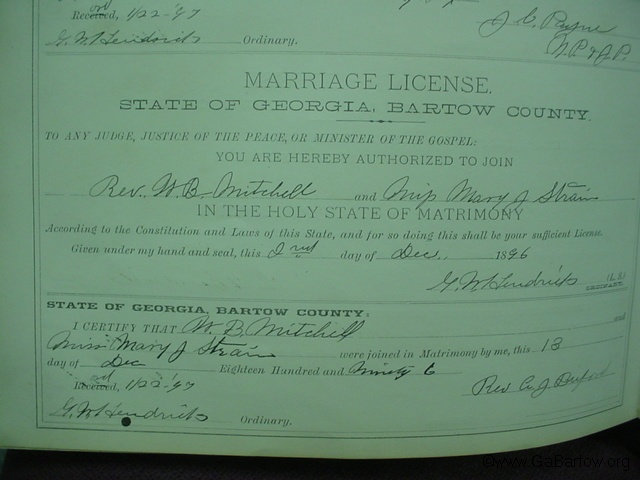 Received, 1/22-97
G. W. Hendricks Ordinary.
J. C. Payne
N.P. & J.P.
MARRIAGE LICENSE.
STATE OF GEORGIA, BARTOW COUNTY.
TO ANY JUDGE, JUSTICE OF THE PEACE, OR MINISTER OF THE GOSPEL:
YOU ARE HEREBY AUTHORIZED TO JOIN
Rev. W. B. Mitchell and Miss Mary J Strain
IN THE HOLY STATE OF MATRIMONY
According to the Constitution and Laws of this State, and for so doing this shall be your sufficient License.
Given under my hand and seal, this 2nd day of Dec. 1896
G. W. Hendricks (L.S)
ORDINARY.
STATE OF GEORGIA, BARTOW COUNTY:
I CERTIFY THAT W. B. Mitchell and
Miss Mary J Strain were joined in Matrimony by me, this 13
day of Dec Eighteen Hundred and ninety 6
Rev A. J.
Received, 1/22-97
G. W. Hendricks Ordinary.
©www.GaBartow.org